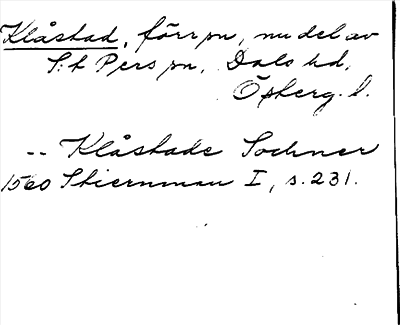 Klåstad, förr sn, nu del av
S:t Pers sn, Dals hd,
Östberg. l.
-- Klåstade Sochner
1560 Stiernman I, s. 231.